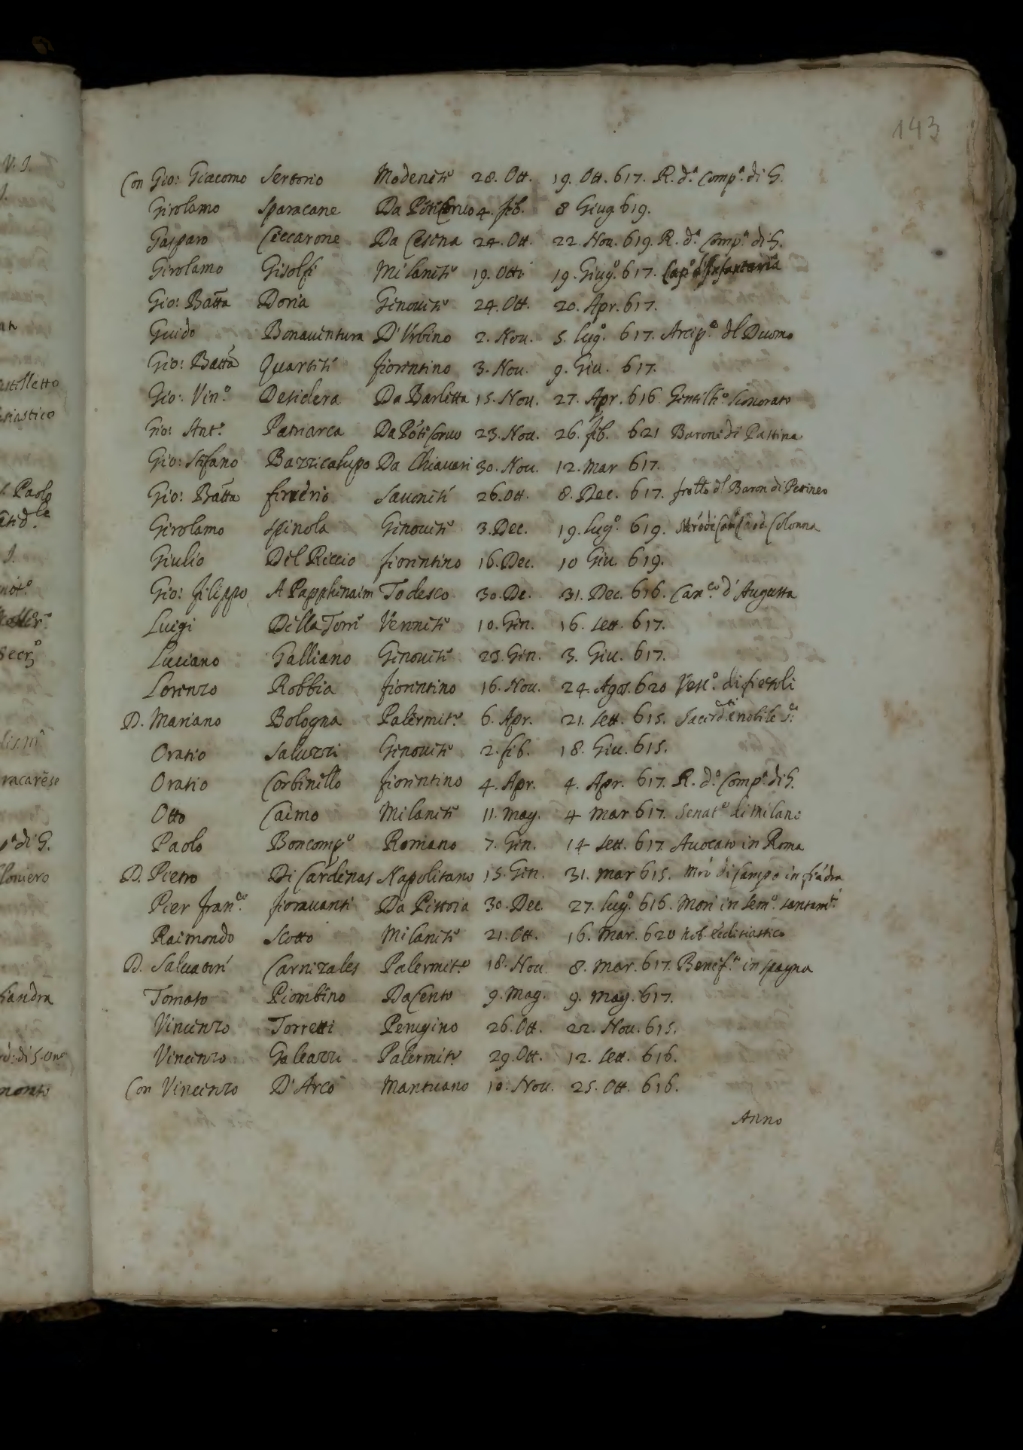 143
Con Gio: Giacomo Sertorio Modenese 28. Ott. 19. Ott. 617. R. d.ª Comp.ª di G.
Girolamo Sparacane Da 4. feb. 8 Giug 619.
Gasparo Ceccarone Da Cesena 24. Ott. 22. Nov. 619. R. d.ª Comp.ª di G.
Girolamo Gisolfi Milanese 19. Ott. 19. Giug.º 617. Cap.º d'Infanteria
Gio: Batta Doria Genovese 24. Ott. 20. Apr. 617.
Guido Bonaventura D'Urbino 2. Nov. 5. lug.º 617. Arcip.e del Duomo
Gio: Batta Quartesi fiorentino 3. Nov. 9. Giu. 617.
Gio: Vin.º Desidera Da Barletta 15. Nov. 27. Apr. 616
Gio: Ant.º Patriarca Da 23. Nov. 26. feb. 621 Barone di
Gio: Stefano Bazzicalupo Da Chiavari 30. Nov. 12. Mar 617.
Gio: Batta Savonese 26. Ott. 8. Dec. 617. frat.º del Baron di
Girolamo Spinola Genovese 3. Dec. 19. lug.º 619. Colonna
Giulio Del Riccio fiorentino 16. Dec. 10 Giu. 619.
Gio: filippo A Papphinaim Todesco 30. De. 31. Dec. 616. Can.co d'Augusta
Luigi Della Torre 10. Gen. 16. Sett. 617.
Luciano Galliano Genovese 23. Gen. 3. Giu. 617.
Lorenzo Robbia fiorentino 16. Nov. 24. Agos. 620 Vesc.º di fiesoli
D. Mariano Bologna Palermit.º 6. Apr. 21. Sett. 615.
Oratio Saluzzi Genovese 2. feb. 18. Giu. 615.
Oratio Corbinello fiorentino 4. Apr. 4. Apr. 617. R. d.ª Comp.ª di G.
Otto Caimo Milanese 11. mag. 4 mar 617. Senat.e di Milano
Paolo Boncomp.º Romano 7. Gen. 14 Sett. 617 Avocato in Roma
D. Pietro Di Cardenas Napolitano 15. Gen. 31. mar 615. in fiadra
Pier fran.co fioravanti Da Pistoia 30. Dec. 27. lug.º 616. Mori in Sem.º santam.te
Raimondo Scotto Milanese 21. Ott. 16. Mar. 620 nob. eclesiastico
D. Salvatore Carnizales Palermit.º 18. Nov. 8. Mar. 617. Benef.º in spagna
Tomaso Piombino Da Cento 9. Mag. 9. Mag. 617.
Vincenzo Torretti Perugino 26. Ott. 22. Nov. 615.
Vincenzo Galeazzi Palermit.º 29. Ott. 12. Sett. 616.
Con Vincenzo D'Arco Mantuano 10. Nov. 25. Ott. 616.
Anno